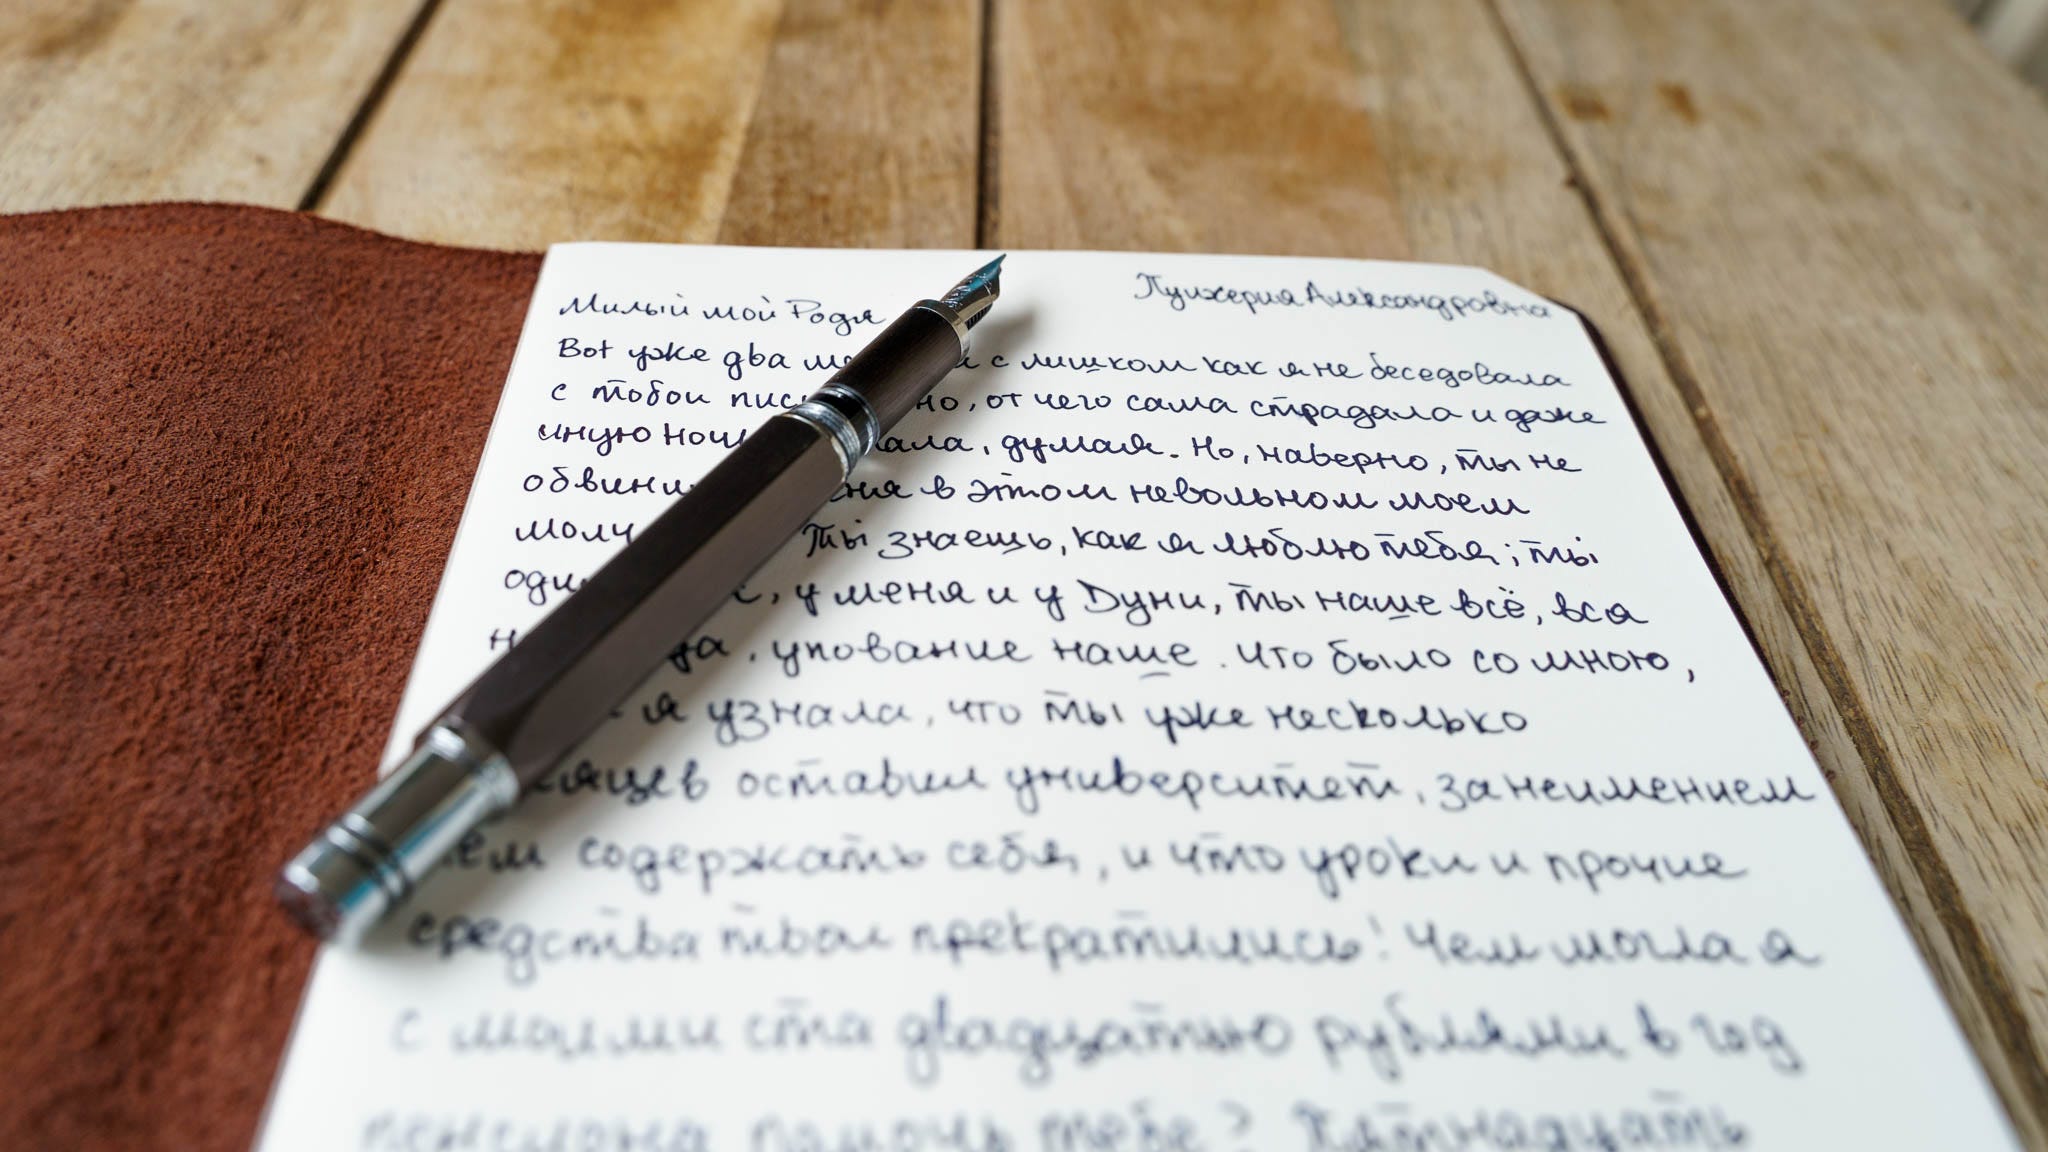 Пулхерия Александровна
Милый мой Родя
Вот уже два с лишком как я не беседовала
с тобой, от чего сама страдала и даже
иную думая. Но, наверно, ты не
в этом невольном моем
Ты знаешь, как я люблю тебя; ты
у меня и у Дуни, ты наше всё, вся
упование наше. Что было со мною,
я узнала, что ты уже несколько
оставил университет, за неимением
содержать себя, и что уроки и прочие
средства твои прекратились! Чем могла я
с моими ста двадцатью рублями в год
пенсиона помочь тебе? Пятнадцать